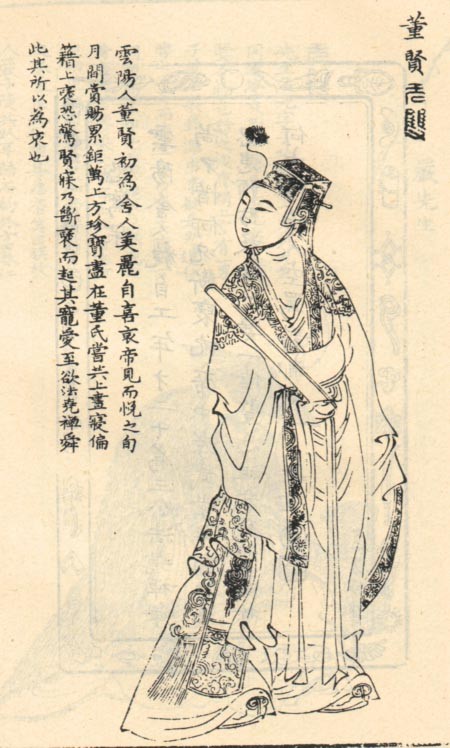 董賢无雙
雲陽人董賢初為舍人美麗自喜哀帝見而悅之旬
月間賞賜累鉅萬上方珍寶盡在董氏嘗共上晝寢偏
籍上褏恐驚賢寐乃斷褏而起其寵愛至欲法堯禪舜
此其所以為哀也